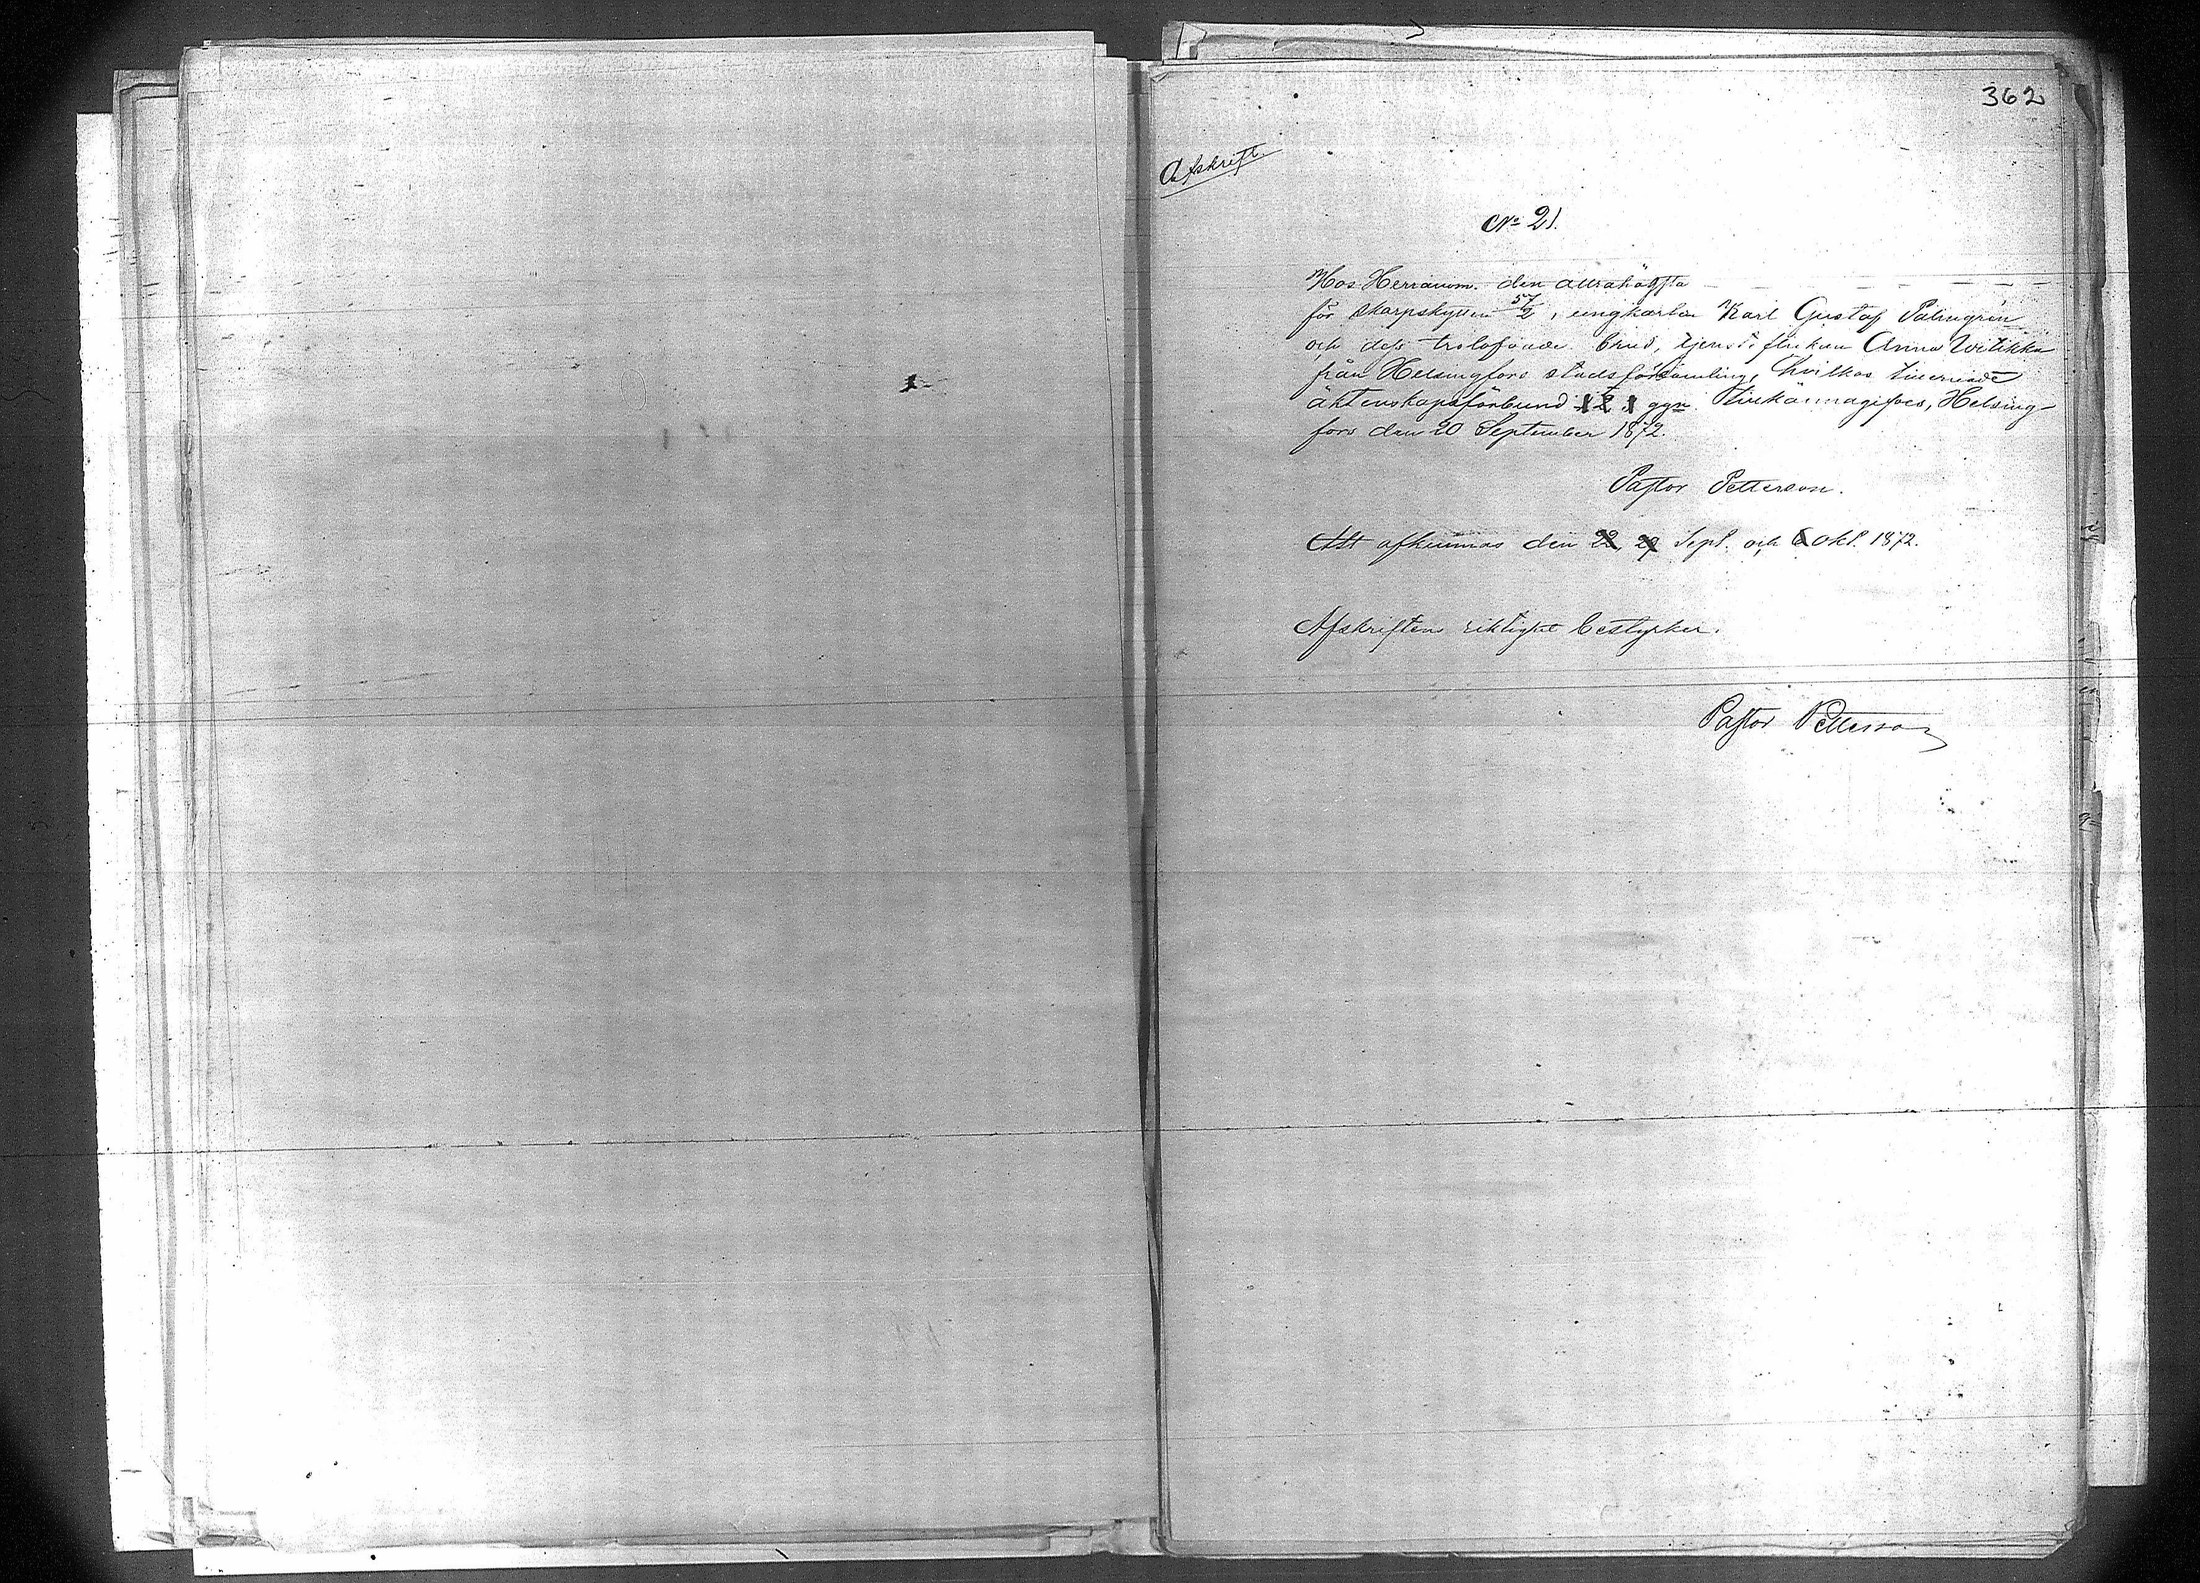 362
Afskrift.
No 21.
Hos Herranom. den allrahögsta
för skarpskytten 57/2, ungkarlen Karl Gustaf Palmgren
och dess trolofvade brud, tjenstflickan Anna Witikka
från Helsingfors stadsförsamling, hvilkas tillernade
äktenskapsförbund 1 2 3 ggn tillkännagifves, Helsing-
fors den 20 September 1872.
Pastor Petterson.
Att afkunnas den 22, 29 Sept. och 6 Okt. 1872.
Afskriftens riktighet bestyrker.
Pastor Petterson